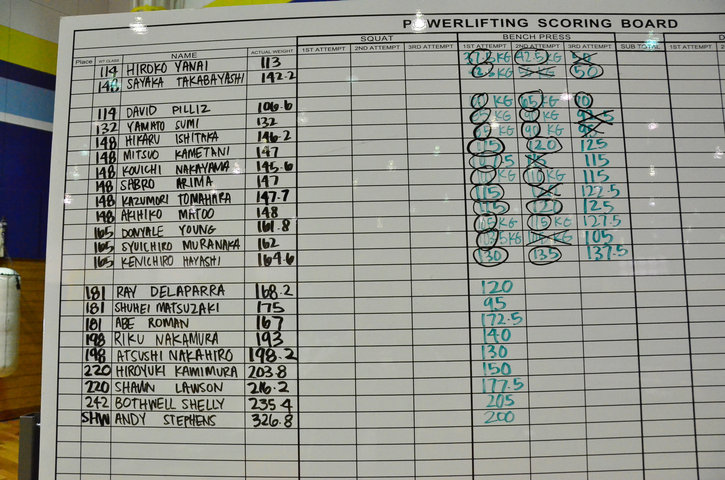 POWERLIFTING SCORING BOARD
SQUAT BENCH PRESS
Place WT CLASS NAME ACTUAL WEIGHT 1ST ATTEMPT 2ND ATTEMPT 3RD ATTEMPT 1ST ATTEMPT 2ND ATTEMPT 3RD ATTEMPT SUB TOTAL 1ST ATTEMPT
114 HIROKO YANAI 113 37.5KG 42.5KG 50
148 SAYAKA TAKABAYASHI 142.2 50
114 DAVID PILLIZ 106.6 KG 65KG 70
132 YAMATO SUMI 132 KG KG
148 HIKARU ISHITAKA 146.2 KG 90 KG 95
148 MITSUO KAMETANI 147 115 120 125
148 KOUICHI NAKAYAMA 145.6 115
148 SABRO ARIMA 147 KG 110 KG 115
148 KAZUMORI TOMAHARA 147.7 115 122.5
148 AKIHIKO MATOO 148 115 120 125
165 DONYALE YOUNG 161.8 KG 115KG 127.5
165 SYUICHIRO MURANAKA 162 KG KG 105
165 KENICHIRO HAYASHI 164.6 130 135 137.5
181 RAY DELAPARRA 168.2 120
181 SHUHEI MATSUZAKI 175 95
181 ABE ROMAN 167 172.5
198 RIKU NAKAMURA 193 140
198 ATSUSHI NAKAHIRO 198.2 130
220 HIROYUKI KAMIMURA 203.8 150
220 SHAWN LAWSON 216.2 177.5
242 BOTHWELL SHELLY 235.4 205
SHW ANDY STEPHENS 326.8 200